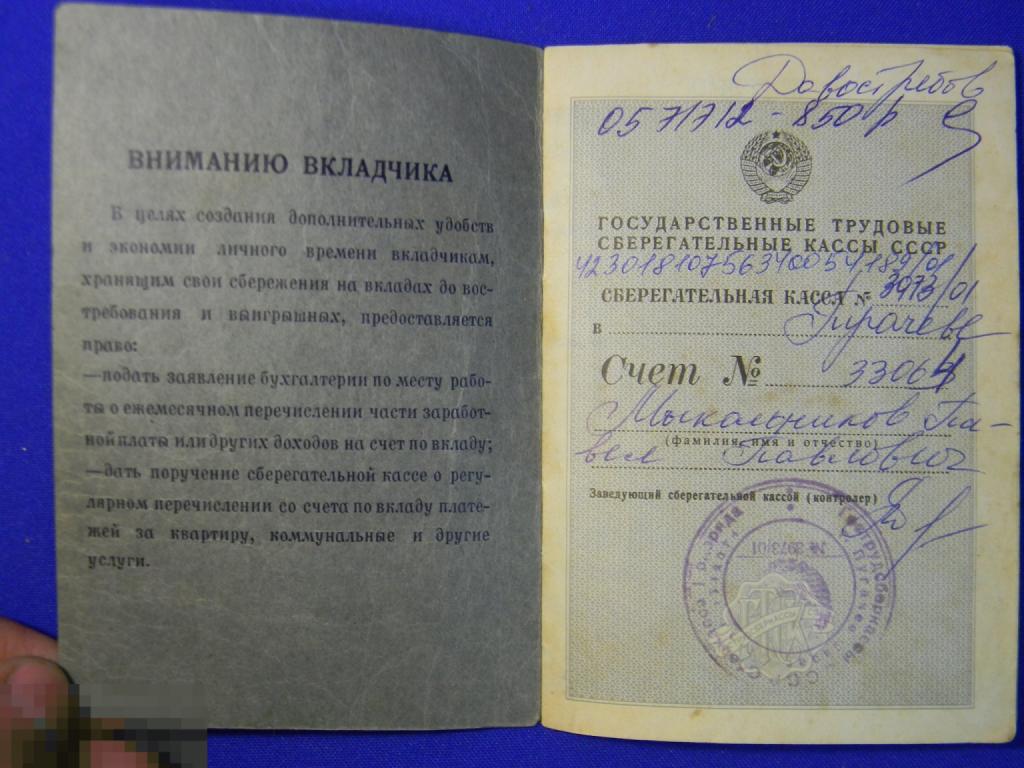 ВНИМАНИЮ ВКЛАДЧИКА
В целях создания дополнительных удобств
и экономии личного времени вкладчикам,
хранящим свои сбережения на вкладах до вос-
требования и выигрышных, предоставляется
право:
—подать заявление бухгалтерии по месту рабо-
ты о ежемесячном перечислении части заработ-
ной платы или других доходов на счет по вкладу;
—дать поручение сберегательной кассе о регу-
лярном перечислении со счета по вкладу плате-
жей за квартиру, коммунальные и другие
услуги.
Довостребов
0571712 - 850 р
ГОСУДАРСТВЕННЫЕ ТРУДОВЫЕ
СБЕРЕГАТЕЛЬНЫЕ КАССЫ СССР
42301810756340054189/01
СБЕРЕГАТЕЛЬНАЯ КАССА № 3973/01
в Пугачеве
Счет № 33064
Мыкольников Па-
(фамилия, имя и отчество)
вел Павлович
Заведующий сберегательной кассой (контролер)
№ 3973/01